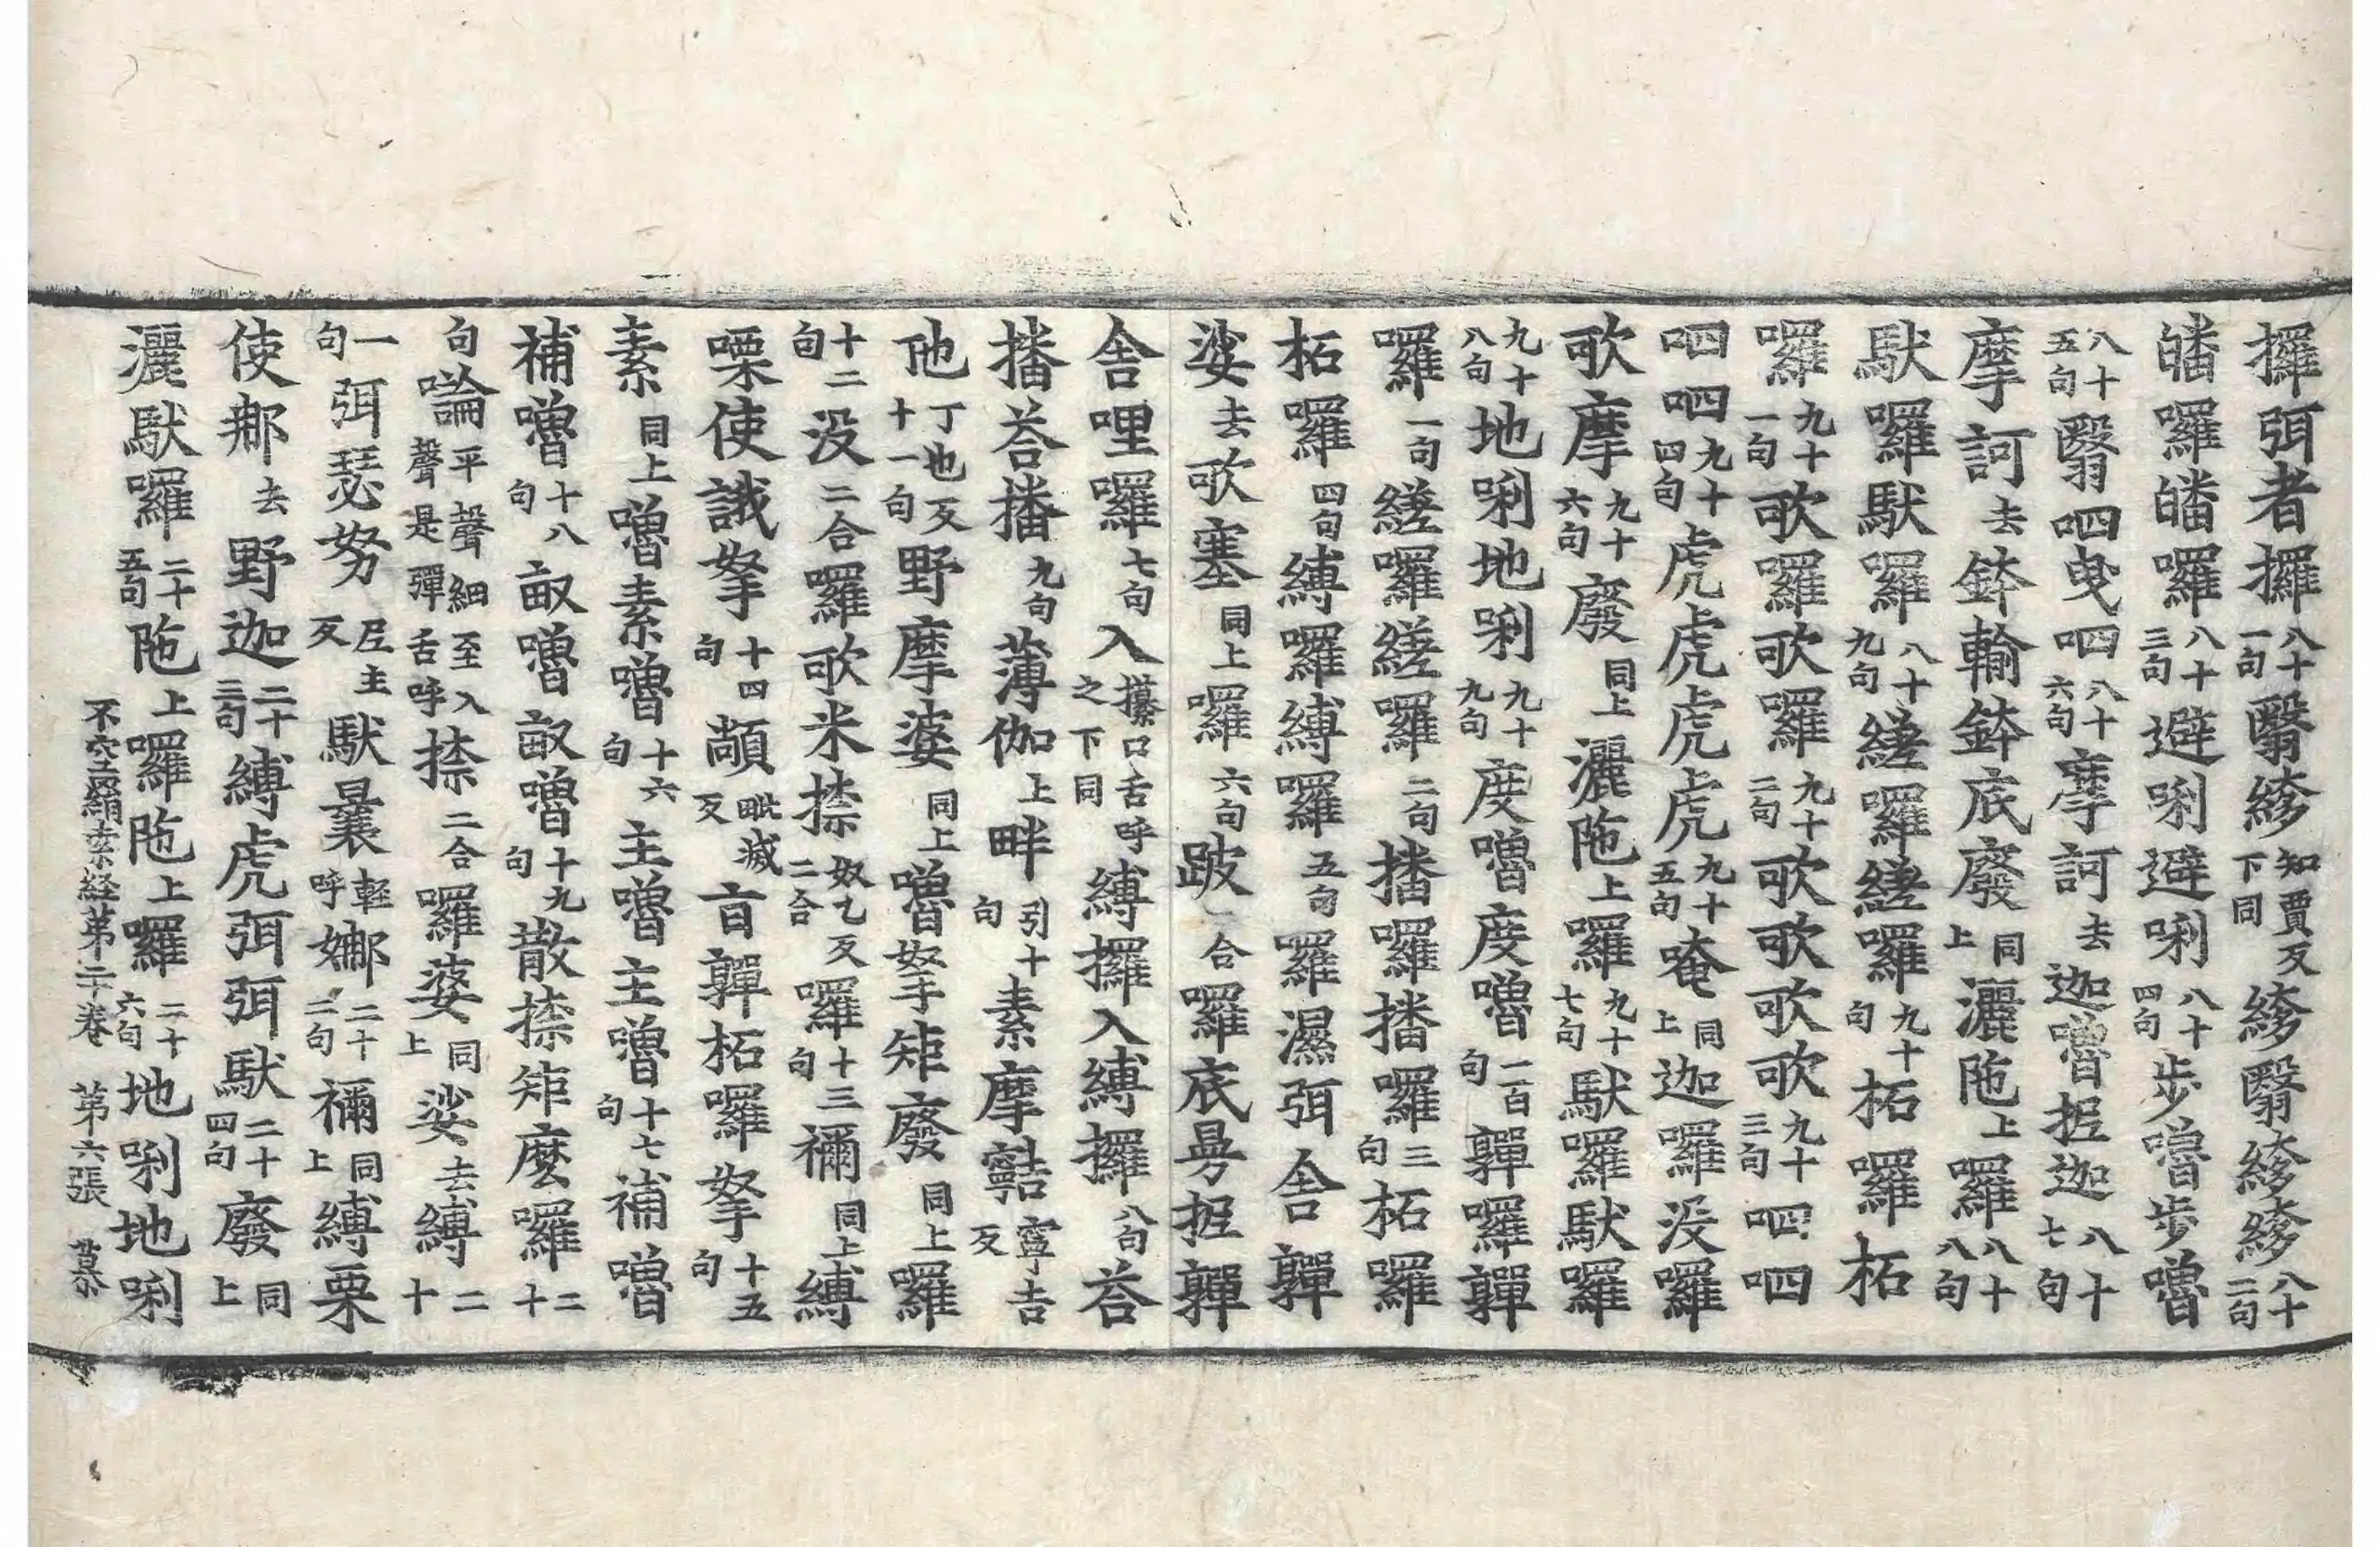 攞弭者攞八十一句翳縿知賈反下同縿翳縿縿八十二句
皤囉皤囉八十三句避唎避唎八十四句步嚕步嚕
八十五句翳呬曳呬八十六句摩訶去迦嚕抳迦八十七句
摩訶去鉢輸鉢底廢同上灑陁上羅八十八句
馱囉馱囉八十九句縒囉縒囉九十句柘囉柘
囉九十一句歌囉歌囉九十二句歌歌歌歌九十三句呬呬
呬呬九十四句虎虎虎虎九十五句唵同上迦囉没囉
歌摩九十六句廢同上灑陁上囉九十七句馱囉馱囉
九十八句地唎地唎九十九句度嚕度嚕一百句嚲囉嚲
囉一句縒囉縒囉二句播囉播囉三句柘囉
柘囉四句縛囉縛囉五句囉濕弭舍嚲
娑去歌塞同上囉六句跛二合囉底曼抳嚲
舍哩囉七句入攥口舌呼之下同縛攞入縛攞八句荅
播荅播九句薄伽上畔引十句素摩𩕳寧吉反
他丁也反十一句野摩婆同上嚕拏矩廢同上囉
十二句没二合囉歌米捺奴乙反二合囉十三句禰同上縛
㗚使誐拏十四句頡毗滅反盲嚲柘囉拏十五句
素同上嚕素嚕十六句主嚕主嚕十七句補嚕
補嚕十八句畝嚕畝嚕十九句散捺矩麼囉二十
句㖮平聲細至入聲是彈舌呼捺二合囉婆同上娑去縛二十
一句弭瑟努𡰱主反馱曩輕呼娜二十二句禰同上縛栗
使郍去野迦二十三句縛虎弭弭馱二十四句廢同上
灑馱囉二十五句陁上囉陁上囉二十六句地唎地唎
不空羂索経第二十卷 第六張 慕